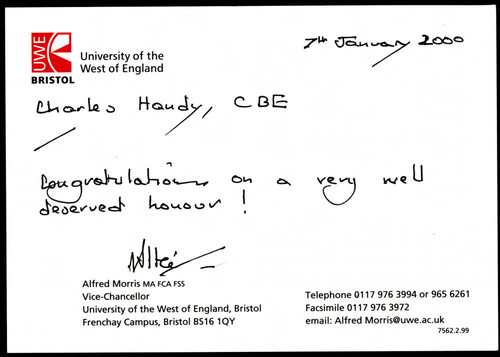 UWE
BRISTOL
University of the
West of England
7th January 2000
Charles Handy, CBE
Congratulations on a very well
deserved honour!
Alfred
Alfred Morris MA FCA FSS
Vice-Chancellor
University of the West of England, Bristol
Frenchay Campus, Bristol BS16 1QY
Telephone 0117 976 3994 or 965 6261
Facsimile 0117 976 3972
email: Alfred.Morris@uwe.ac.uk
7562.2.99